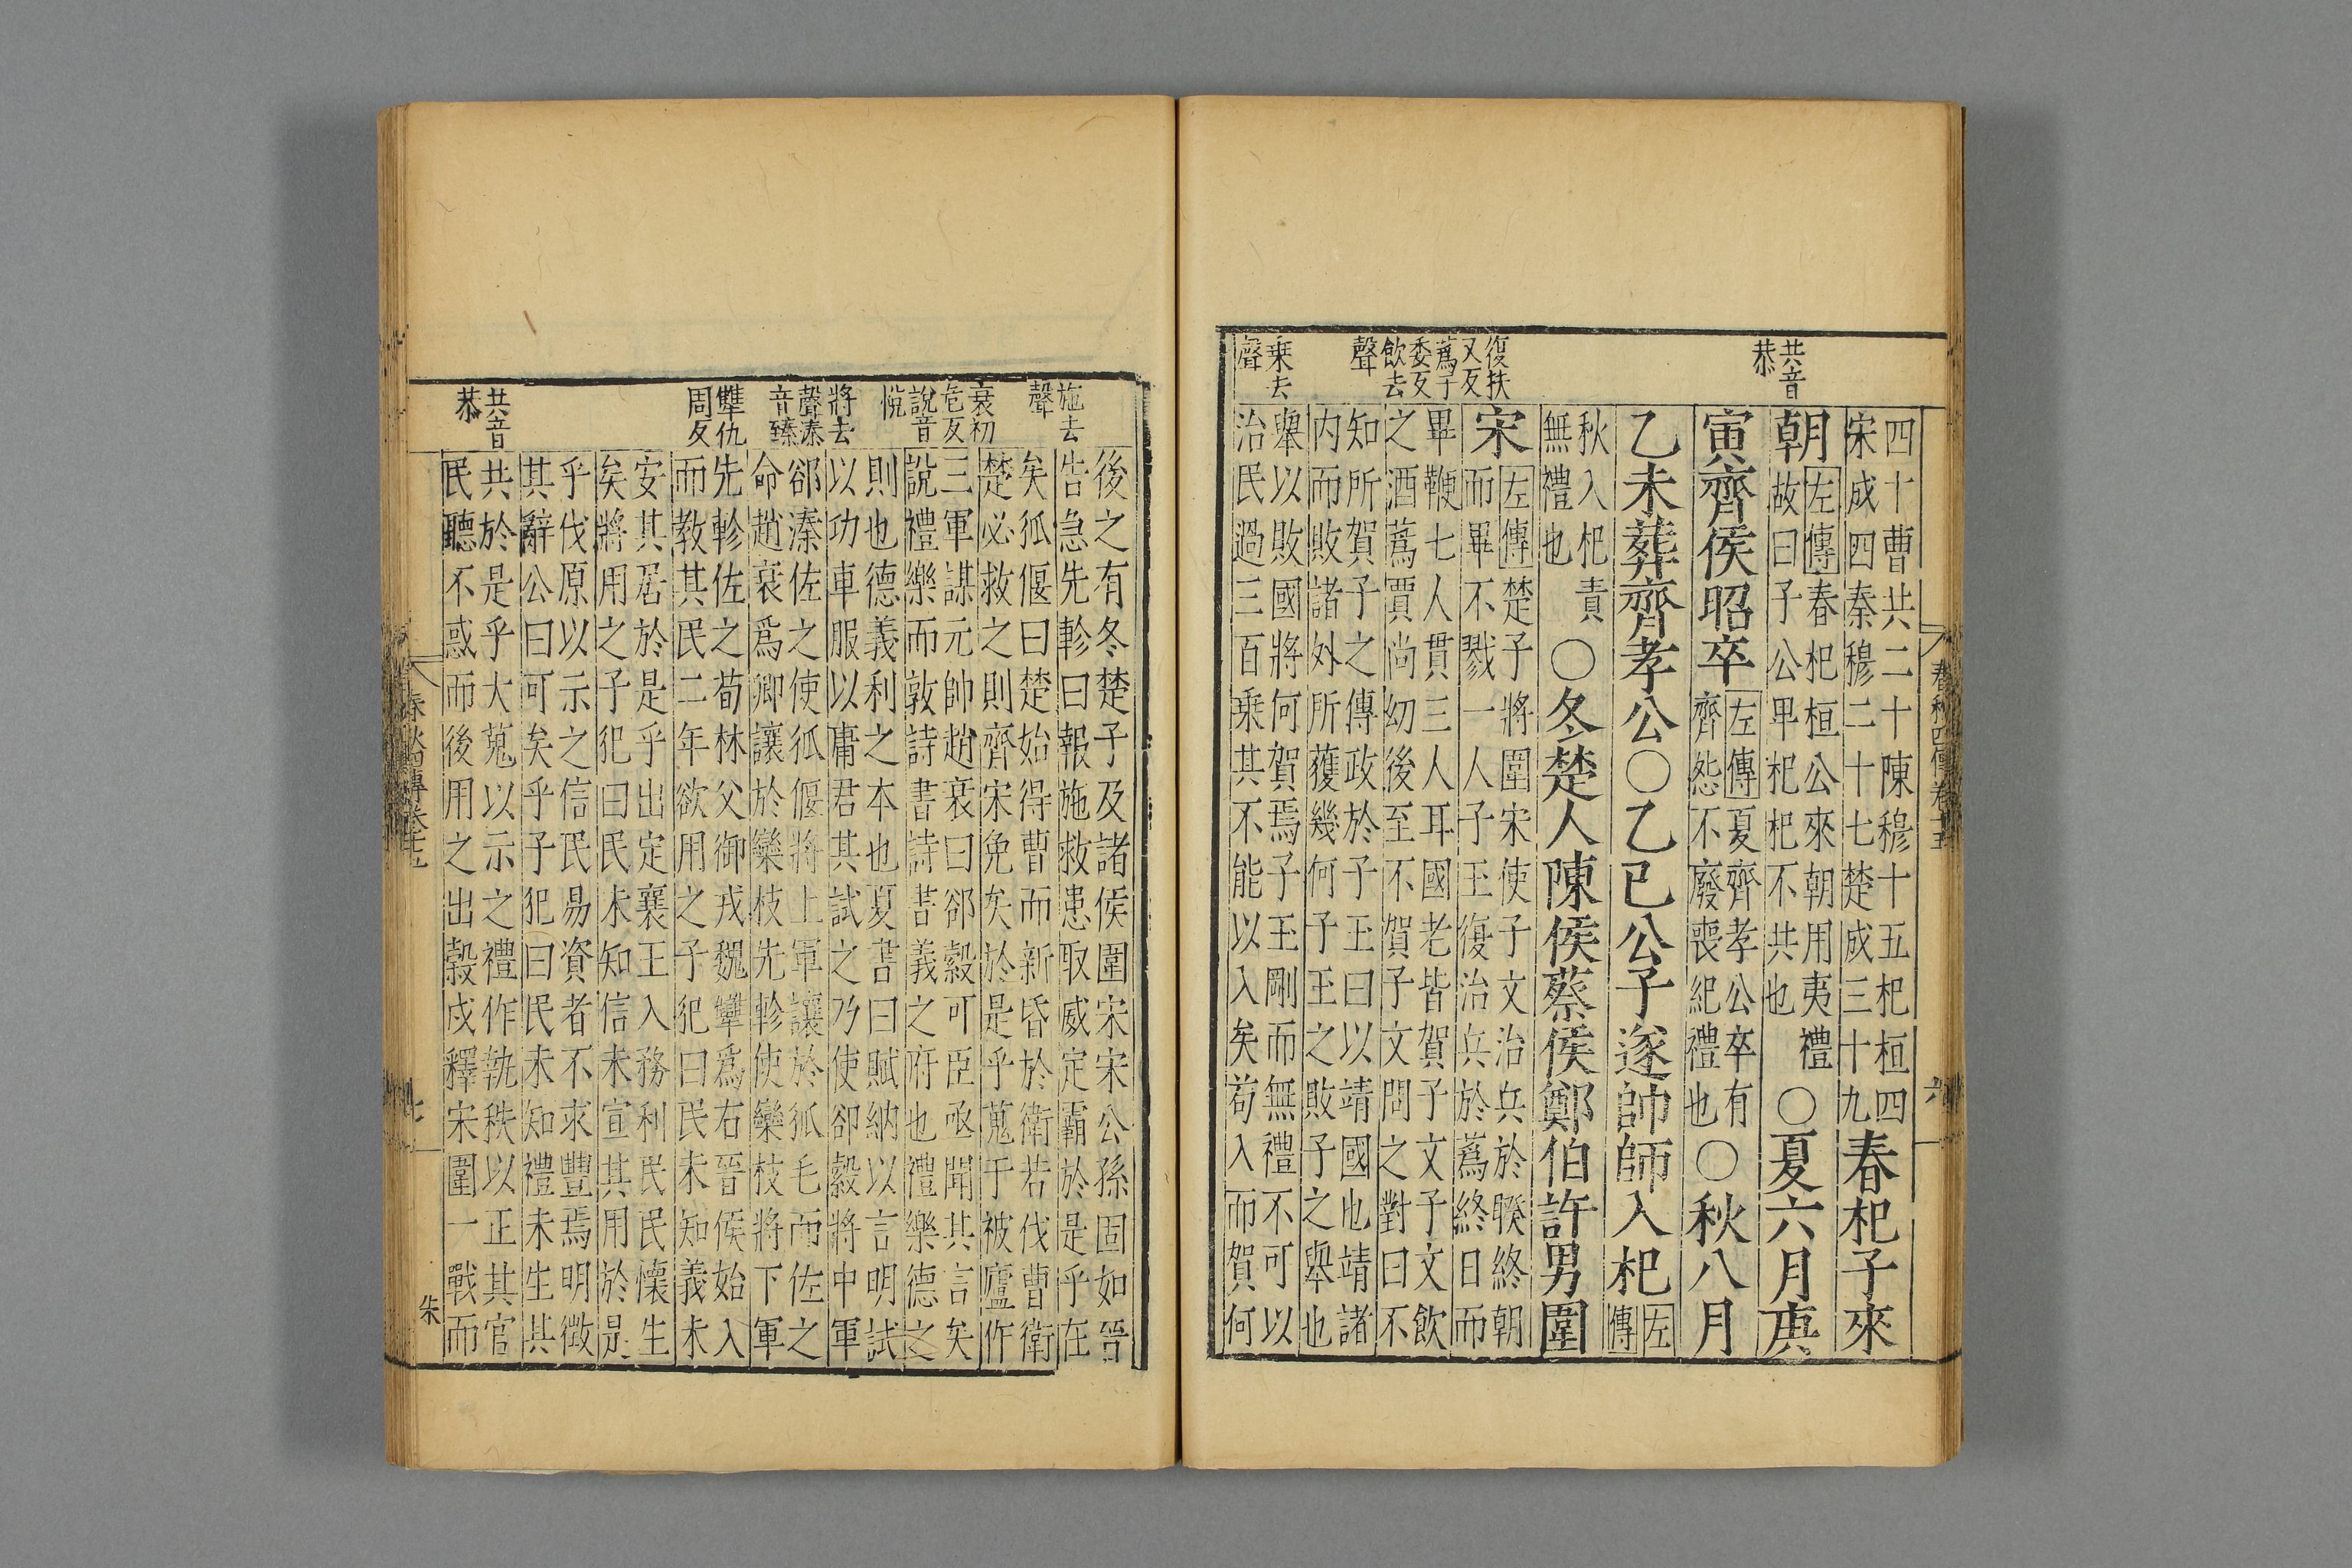 共音
恭
復扶
又反
蒍于
委反
飲去
聲
乗去
聲
四十曹共二十陳穆十五杞桓四
宋成四秦穆二十七楚成三十九
春杞子來
朝
左傳春杞桓公來朝用夷禮
故曰子公卑杞杞不共也
○夏六月庚
寅齊侯昭卒
左傳夏齊孝公卒有
齊怨不廢喪紀禮也
○秋八月
乙未葬齊孝公○乙巳公子遂帥師入杞
左
傳
秋入杞責
無禮也
○冬楚人陳侯蔡侯鄭伯許男圍
宋
左傳楚子將圍宋使子文治兵於睽終朝
而畢不戮一人子玉復治兵於蒍終日而
畢鞭七人貫三人耳國老皆賀子文子文飲
之酒蒍賈尚幼後至不賀子文問之對曰不
知所賀子之傳政於子玉曰以靖國也靖諸
内而敗諸外所獲幾何子玉之敗子之舉也
舉以敗國將何賀焉子玉剛而無禮不可以
治民過三百乗其不能以入矣苟入而賀何
春秋四傳卷十五
六
施去
聲
衰初
危反
說音
悅
將去
聲溱
音臻
犨仇
周反
共音
恭
後之有冬楚子及諸侯圍宋宋公孫固如晉
告急先軫曰報施救患取威定霸於是乎在
矣狐偃曰楚始得曹而新昏於衛若伐曹衛
楚必救之則齊宋免矣於是乎蒐于被廬作
三軍謀元帥趙衰曰郤縠可臣亟聞其言矣
說禮樂而敦詩書詩書義之府也禮樂德之
則也德義利之本也夏書曰賦納以言明試
以功車服以庸君其試之乃使郤縠將中軍
郤溱佐之使狐偃將上軍讓於狐毛而佐之
命趙衰爲卿讓於欒枝先軫使欒枝將下軍
先軫佐之荀林父御戎魏犨爲右晉侯始入
而教其民二年欲用之子犯曰民未知義未
安其居於是乎出定襄王入務利民民懷生
矣將用之子犯曰民未知信未宣其用於是
乎伐原以示之信民易資者不求豐焉明徵
其辭公曰可矣乎子犯曰民未知禮未生其
共於是乎大蒐以示之禮作執秩以正其官
民聽不惑而後用之出穀戍釋宋圍一戰而
春秋四傳卷十五
七
朱